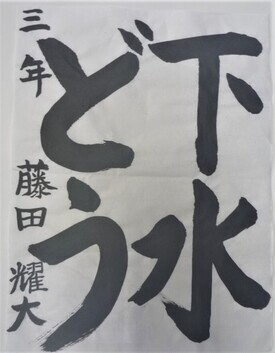 下水
どう
三年 藤田 耀大